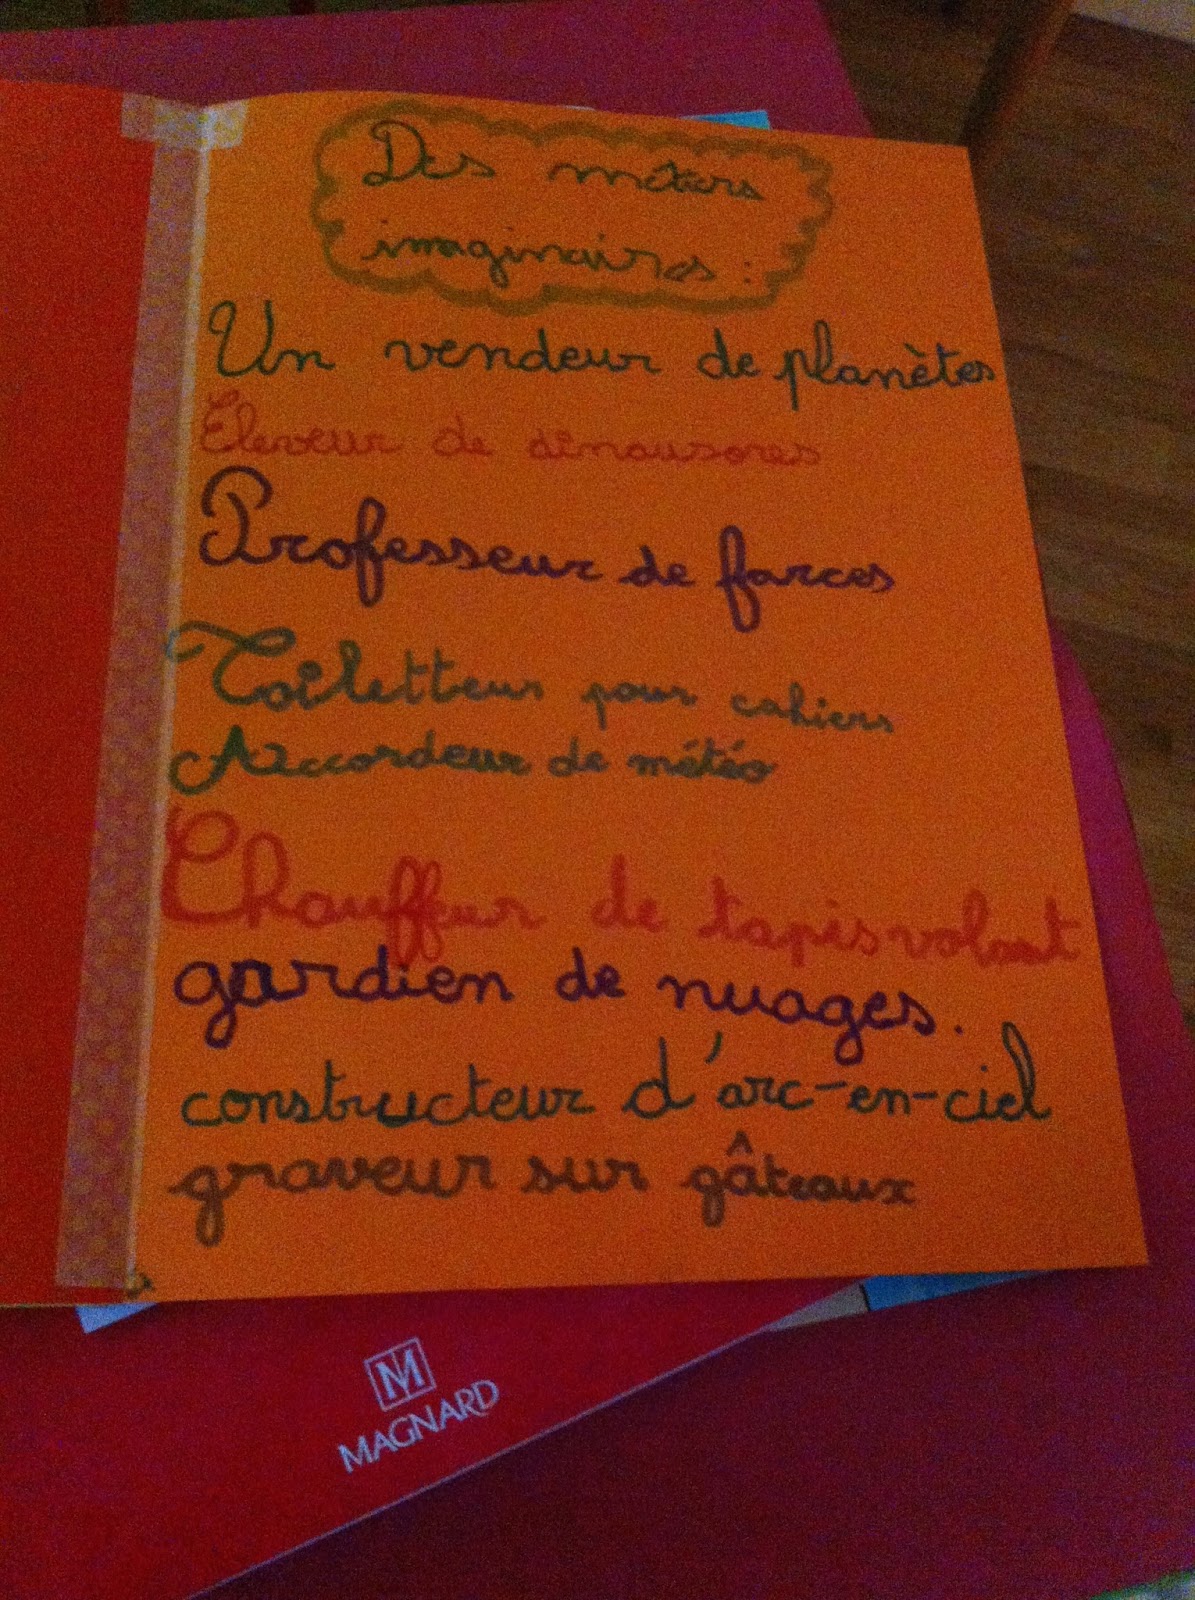 Des métiers
imaginaires :
Un vendeur de planètes
Éleveur de dinausores
Professeur de farces
Toiletteur pour cahiers
Accordeur de météo
Chauffeur de tapis volant
gardien de nuages.
constructeur d'arc-en-ciel
graveur sur gâteaux
M
MAGNARD